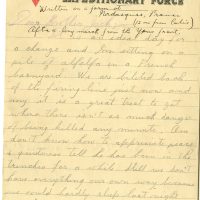 EXPEDITIONARY FORCE
Written in a farm at
France
After a long march from the front,
ideal day for
a change and I'm sitting on a
pile of alfalfa in a French
barnyard. We are billeted back
of the firing line just now and
say it is a great treat to get
where there isn't so much danger
of being killed any minute. One
don't know how to appreciate peace
& quietness till he has been in the
trenches for a while. Still we don't
have everything our own way because
we could hardly sleep last night